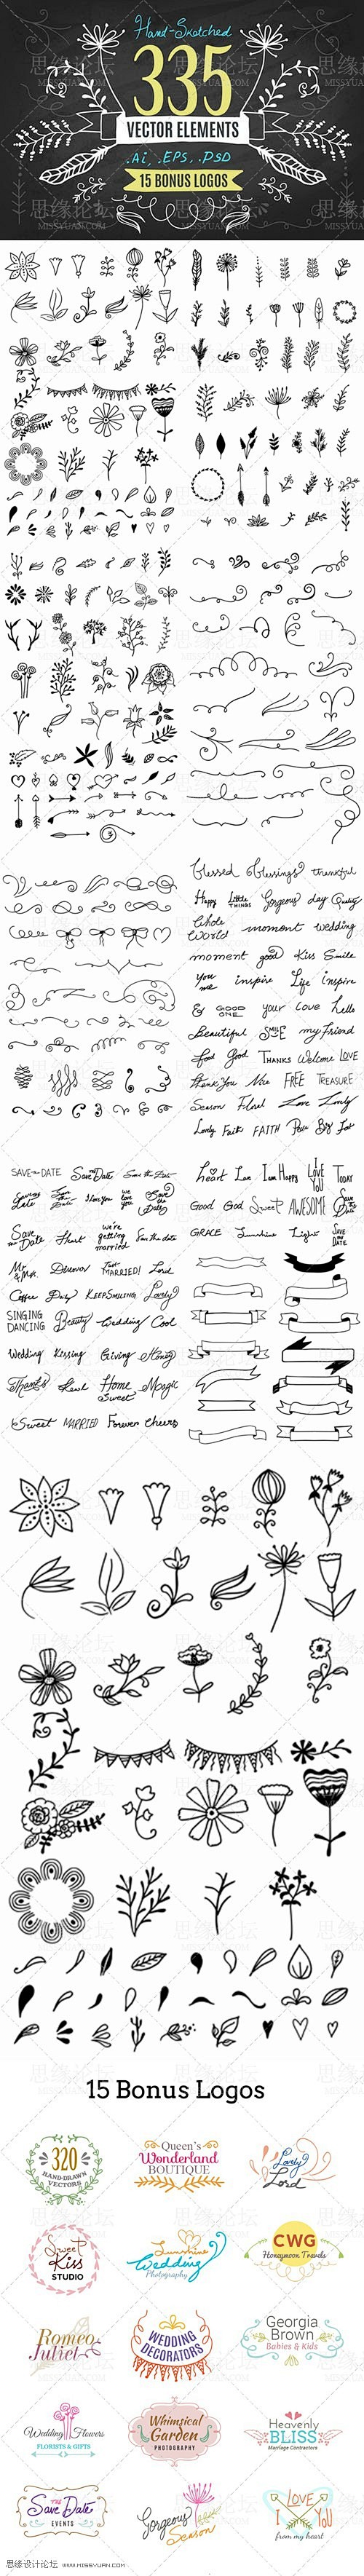 Hand-Sketched
335
VECTOR ELEMENTS
.Ai, .EPS, .PSD
15 BONUS LOGOS
思缘论坛
MISSYUAN.COM
blessed blessings thankful
Happy Little THINGS Gorgeous day Quality
Whole World moment wedding
moment good Kiss Smile
You me inspire Life inspire
& GOOD ONE your love hello
Beautiful SMILE my Friend
Good THANKS Welcome LOVE
Thank You Nice FREE TREASURE
Season Floral Love Lovely
Lovely Faith FAITH Big
SAVE the DATE Save the Date Save the Date
I love you we love you Save the Date
Save the Date Heart we're getting married Save the date
Mr & Mrs. Just MARRIED! Lord
Coffee Daily KEEP SMILING Lovely
SINGING DANCING Beauty Wedding Cool
Wedding Kissing Giving Honey
Thanks Home Sweet Magic
Sweet MARRIED Forever cheers
heart Love I am Happy I LOVE YOU TODAY
Good God Sweet AWESOME
GRACE Sunshine Light SAVE the DATE
15 Bonus Logos
320
HAND-DRAWN
VECTORS
Queen's
Wonderland
BOUTIQUE
Lovely
Lord
Sweet
Kiss
STUDIO
Sunshine
Wedding
Photography
CWG
Honeymoon Travels
Romeo
Juliet
WEDDING
DECORATORS
Georgia
Brown
Babies & Kids
Wedding Flowers
FLORISTS & GIFTS
Whimsical
Garden
PHOTOGRAPHY
Heavenly
BLISS
Marriage Contractors
THE
Save Date
EVENTS
Gorgeous
Season
LOVE
I YOU
from my heart
思缘设计论坛 www.MISSYUAN.com